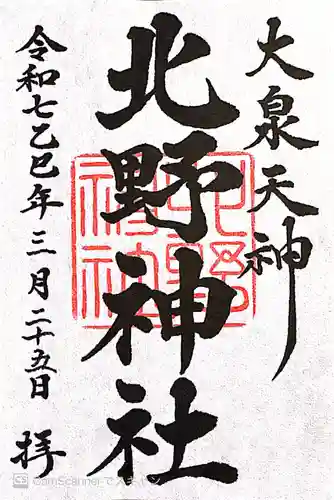 大泉天神
北野神社
令和七乙巳年三月二十五日
拝
北野
神社
CamScannerでスキャン